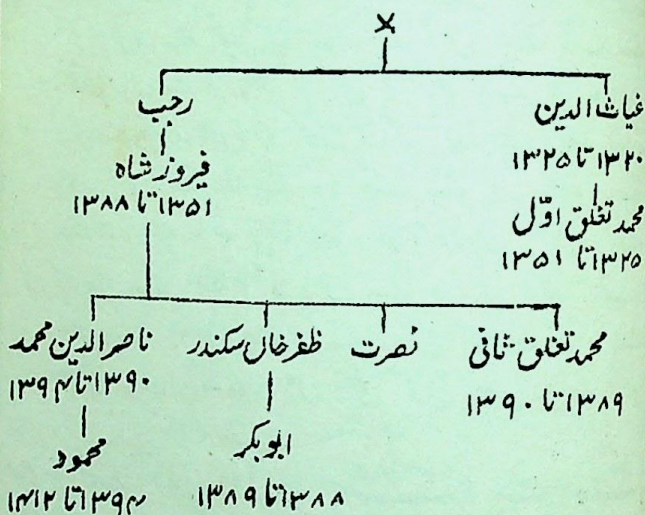 ×
غیاث الدین
۱۳۲۰ تا ۱۳۲۵
محمد تغلق اوّل
۱۳۲۵ تا ۱۳۵۱
رجب
فیروز شاہ
۱۳۵۱ تا ۱۳۸۸
محمد تغلق ثانی
۱۳۸۹ تا ۱۳۹۰
نصرت
ظفر خاں سکندر
ابوبکر
۱۳۸۸ تا ۱۳۸۹
ناصر الدین محمد
۱۳۹۰ تا ۱۳۹۴
محمود
۱۳۹۴ تا ۱۴۱۲